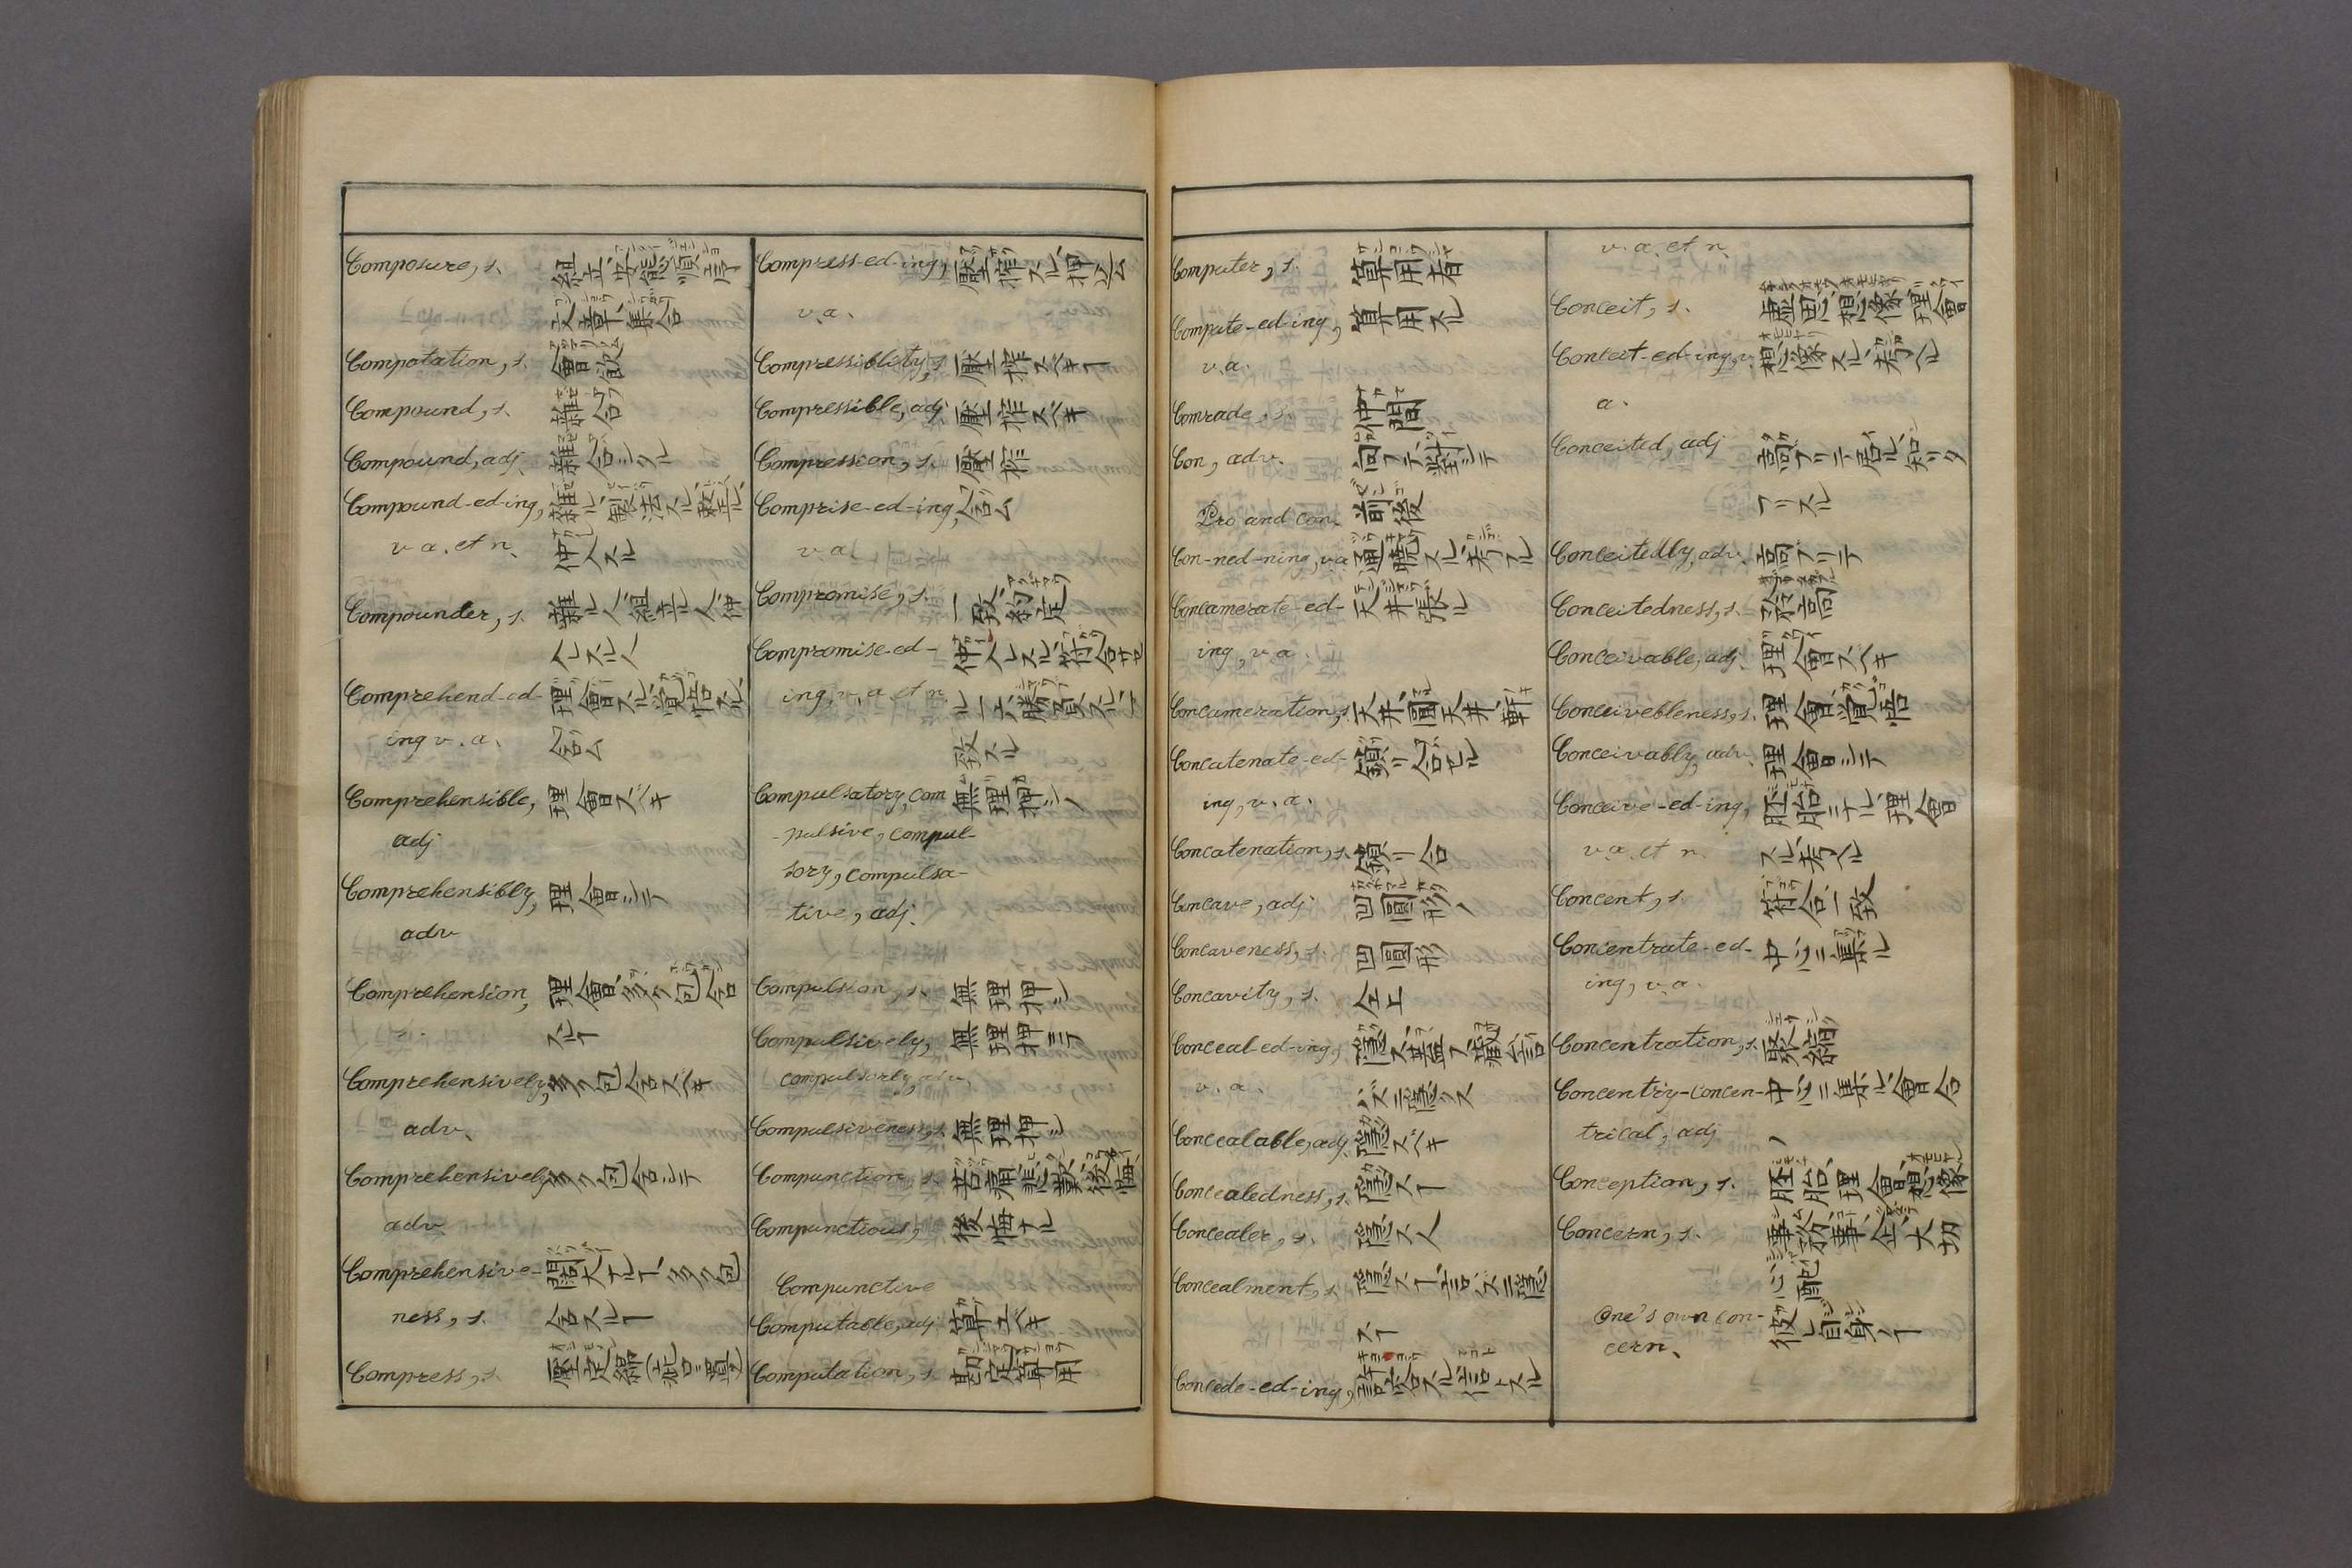 Composure, s.
文章、集合
Compotation, s. 會飲
Compound, s. 雜合
Compound, adj. 雜合シタル
Compound-ed-ing,
v a. et n. 仲人スル
Compounder, s. 雜ル人、組立ル人、仲
人スル人
Comprehend-ed- 理會スル、覚悟スル、
ing v. a. 含ム
Comprehensible, 理會スベキ
adj
Comprehensibly, 理會シテ
adv
Comprehension, 理會、多ク包含
スルヿ
Comprehensively, 多ク包含スベキ
adv.
Comprehensively 多ク包含シテ
adv
Comprehensive- 濶大ナルヿ、多ク包
ness, s. 含スルヿ
Compress, s.
Compress-ed-ing, 壓搾スル、押込ム
v. a.
Compressiblity, s. 壓搾スベキヿ
Compressible, adj. 壓搾スベキ
Compression, s. 壓搾
Comprise-ed-ing, 含ム
v. a.
Compromise, s. 一致、約定
Compromise-ed- 仲人スル、符合サセ
ing, v. a. et n.
致スル
Compulsatory, com 無理押シノ
-pulsive, compul-
sory, compulsa-
tive, adj.
Compulsion, s. 無理押シ
Compulsively, 無理押ニテ
compulsorly, adv,
Compulsiveness, s. 無理押シ
Compunction, s. 苦痛、悲歎、後悔
Compunctious, 後悔ナル
Compunctive
Computable, adj. 算スベキ
Computation, s. 勘定、算用
Computer, s. 算用者
Compute-ed-ing, 算用スル
v. a.
Comrade, s. 仲間
Con, adv. 向フテ、對シテ
Pro and con. 前後
Con-ned-ning, v.a
Concamerate-ed- 天井張ル
ing, v a.
Concameration, s. 天井、圓天井、軒
Concatenate-ed- 鎖リ合セル
ing, v. a.
Concatenation, s. 鎖リ合
Concave, adj. 凹圓形ノ
Concaveness, s. 凹圓形
Concavity, s. 仝上
Conceal-ed-ing, 隠ス、蓋フ、藏、言
v. a. ハズニ隠クス
Concealable, adj. 隠スベキ
Concealedness, s. 隠スヿ
Concealer, s. 隠ス人
Concealment, s. 隠スヿ、言ハズニ隠
スヿ
Concede-ed-ing, 許容スル、信トスル
v. a. et n.
Conceit, s. 思、想像、理會
Conceit-ed-ing, v. 想像スル、考ヘル
a.
Conceited, adj 高ブリテ居ル、知リタ
フリスル
Conceitedly, adv. 高ブリテ
Conceitedness, s.
Conceivable, adj. 理會スベキ
Conceivebleness, s. 理會、覚悟
Conceivably, adv. 理會シテ
Conceive-ed-ing, 胚胎ニナル、理會
v. a. et n. スル、考ヘル
Concent, s. 符合、一致
Concentrate-ed- 中心ニ集ル
ing, v. a.
Concentration, s. 聚縮
Concentry-concen- 中心ニ集ル、會合
trical, adj ノ
Conception, s. 胚胎、理會、想像
Concern, s. 事務、事、仝、大切
心配
One's own con- 彼レ自身ノヿ
cern.